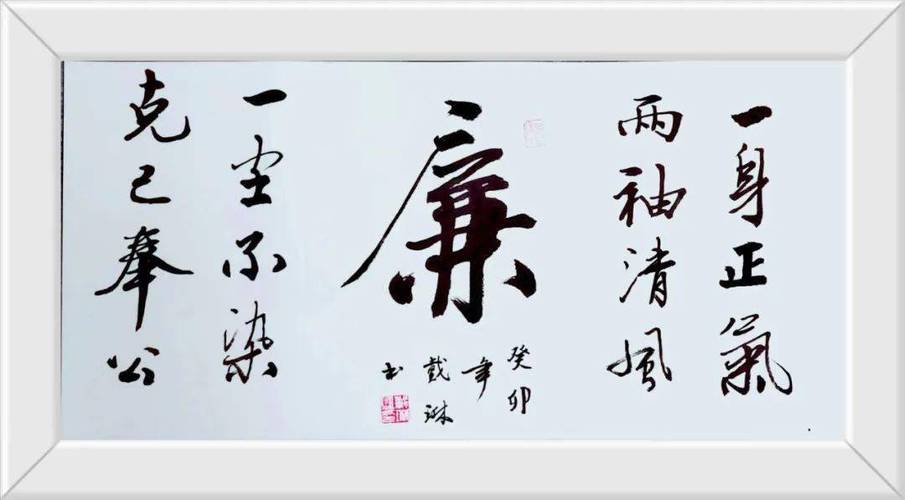 一身正氣
兩袖清風
廉
癸卯
年
戴琳
书
一尘不染
克己奉公